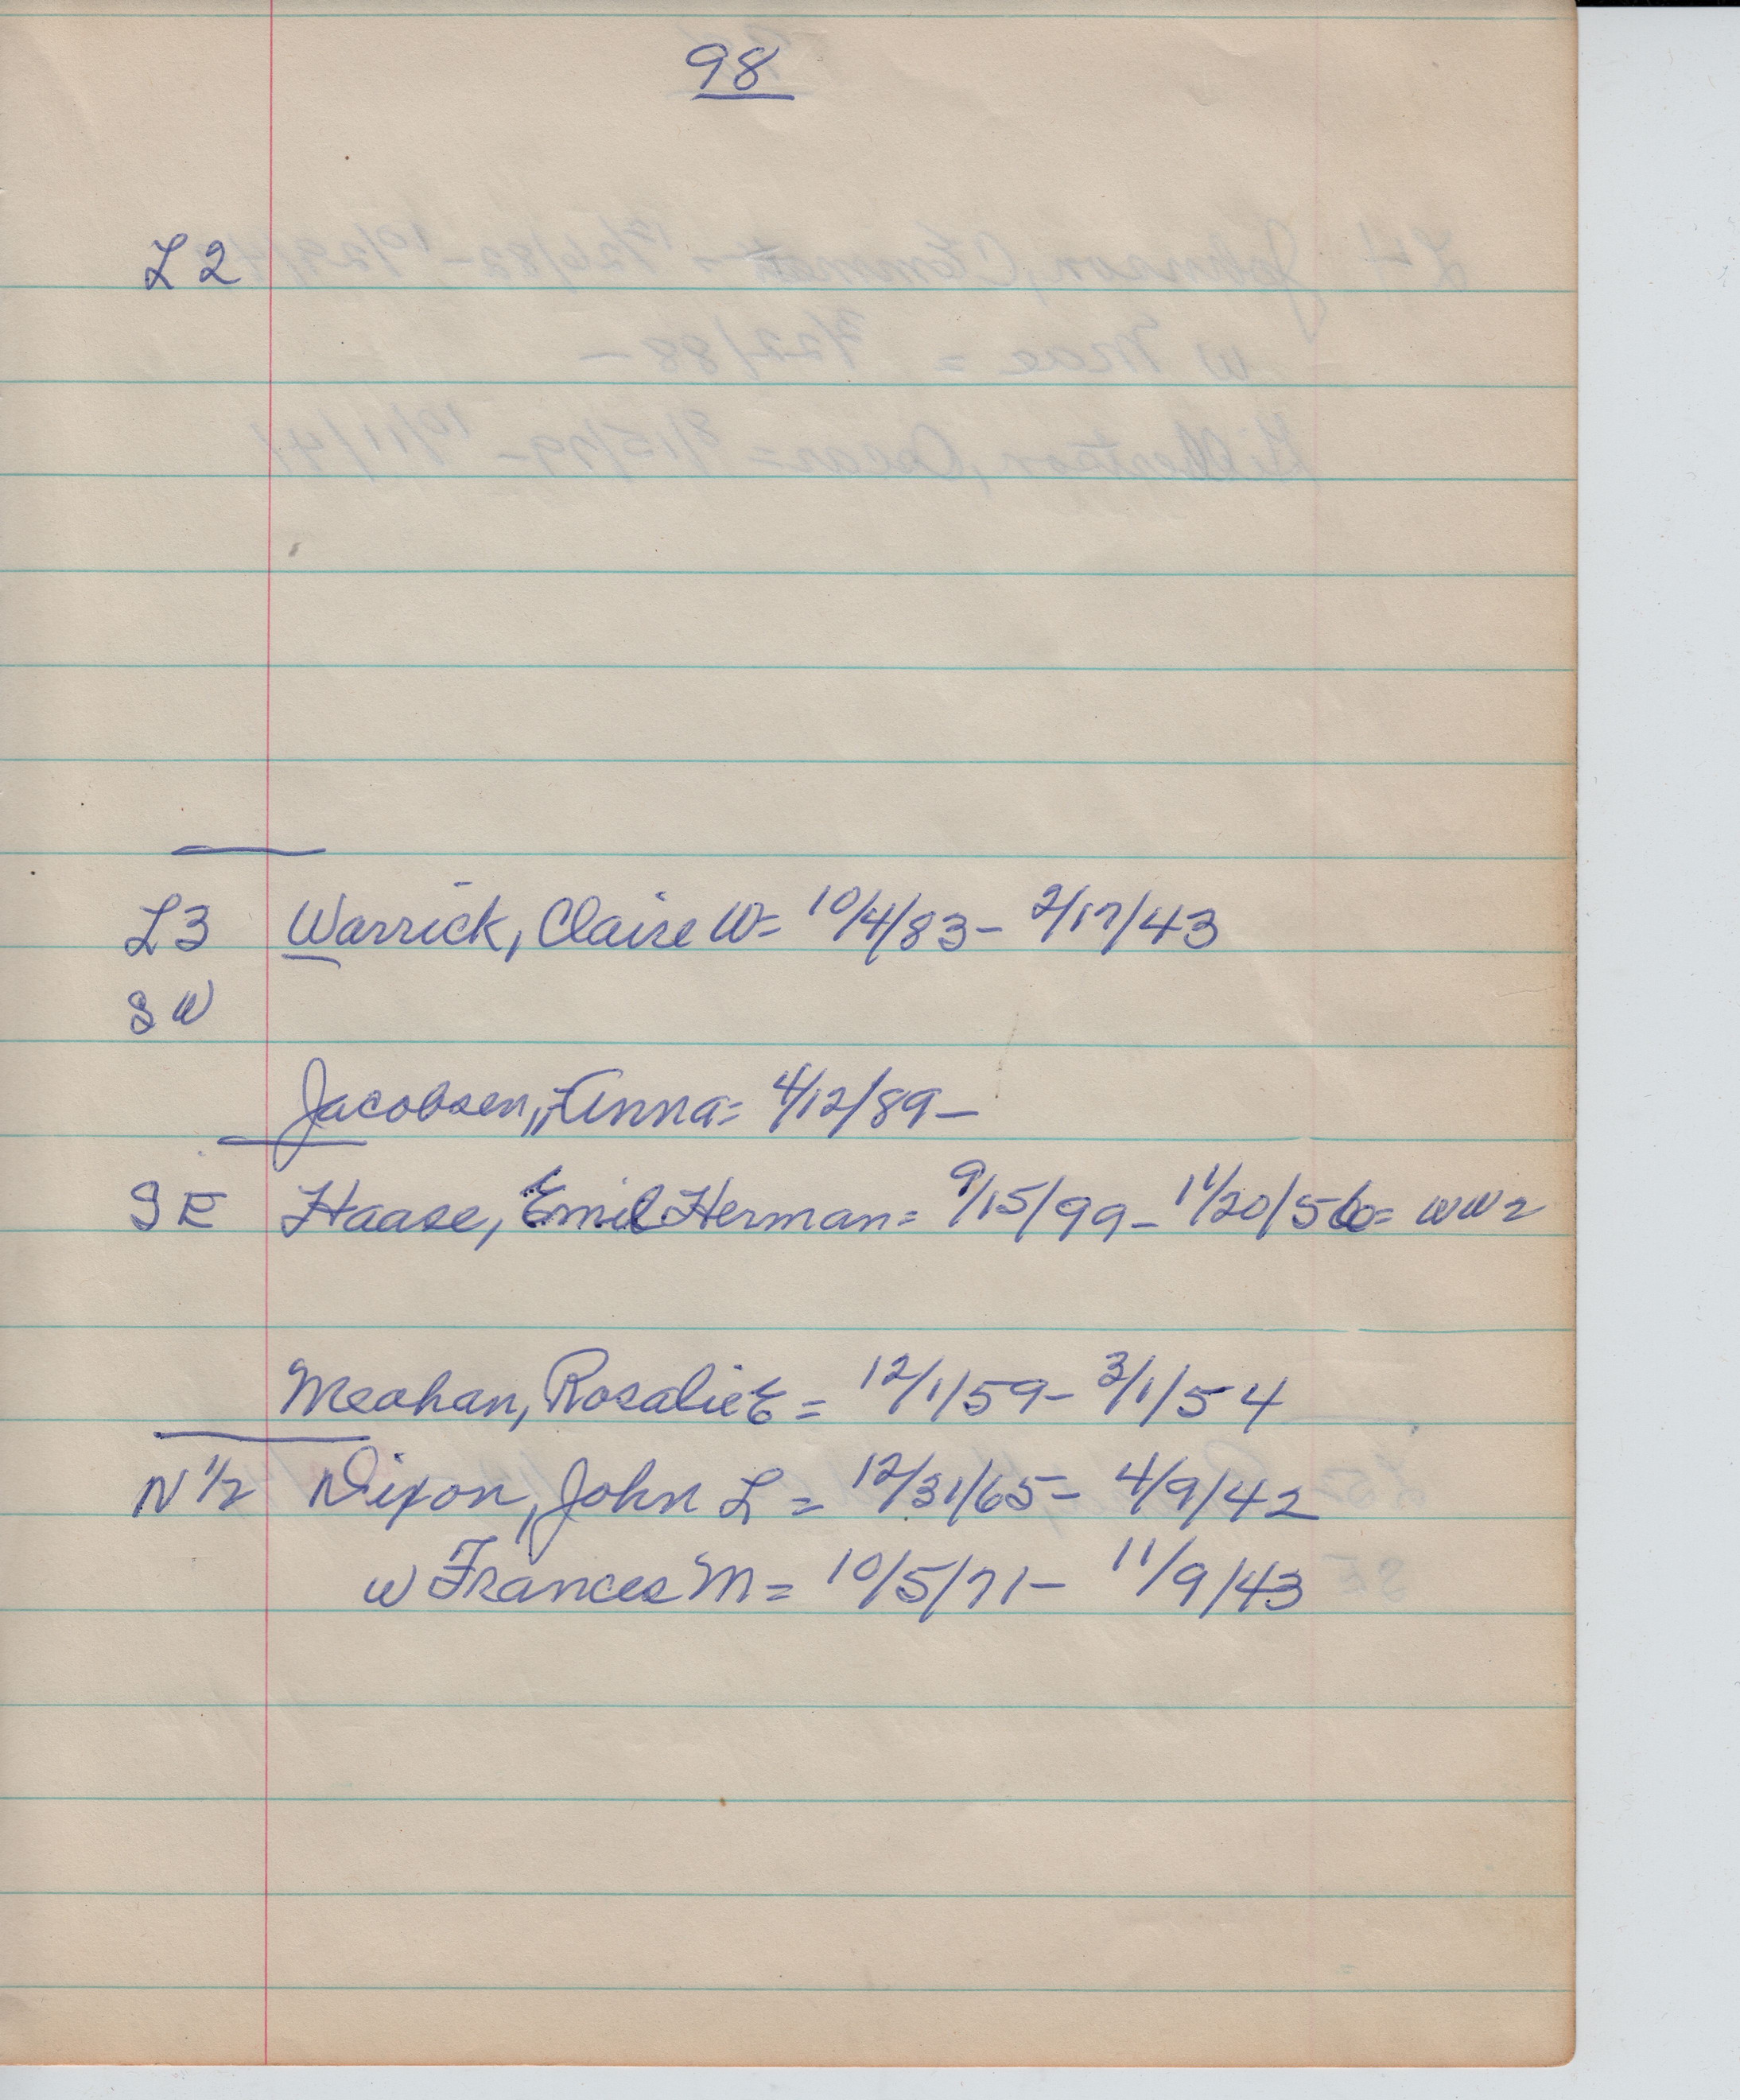 98
L2
L3 Warrick, Claire W= 10/4/83- 2/17/43
SW
Jacobsen, Anna= 4/12/89-
SE Haase, Emil Herman= 9/15/99- 11/20/56= WW2
Meahan, Rosalie E = 12/1/59- 3/1/54
N 1/2 Dixon, John L = 12/31/65- 4/9/42
w Frances M = 10/5/71- 11/9/43